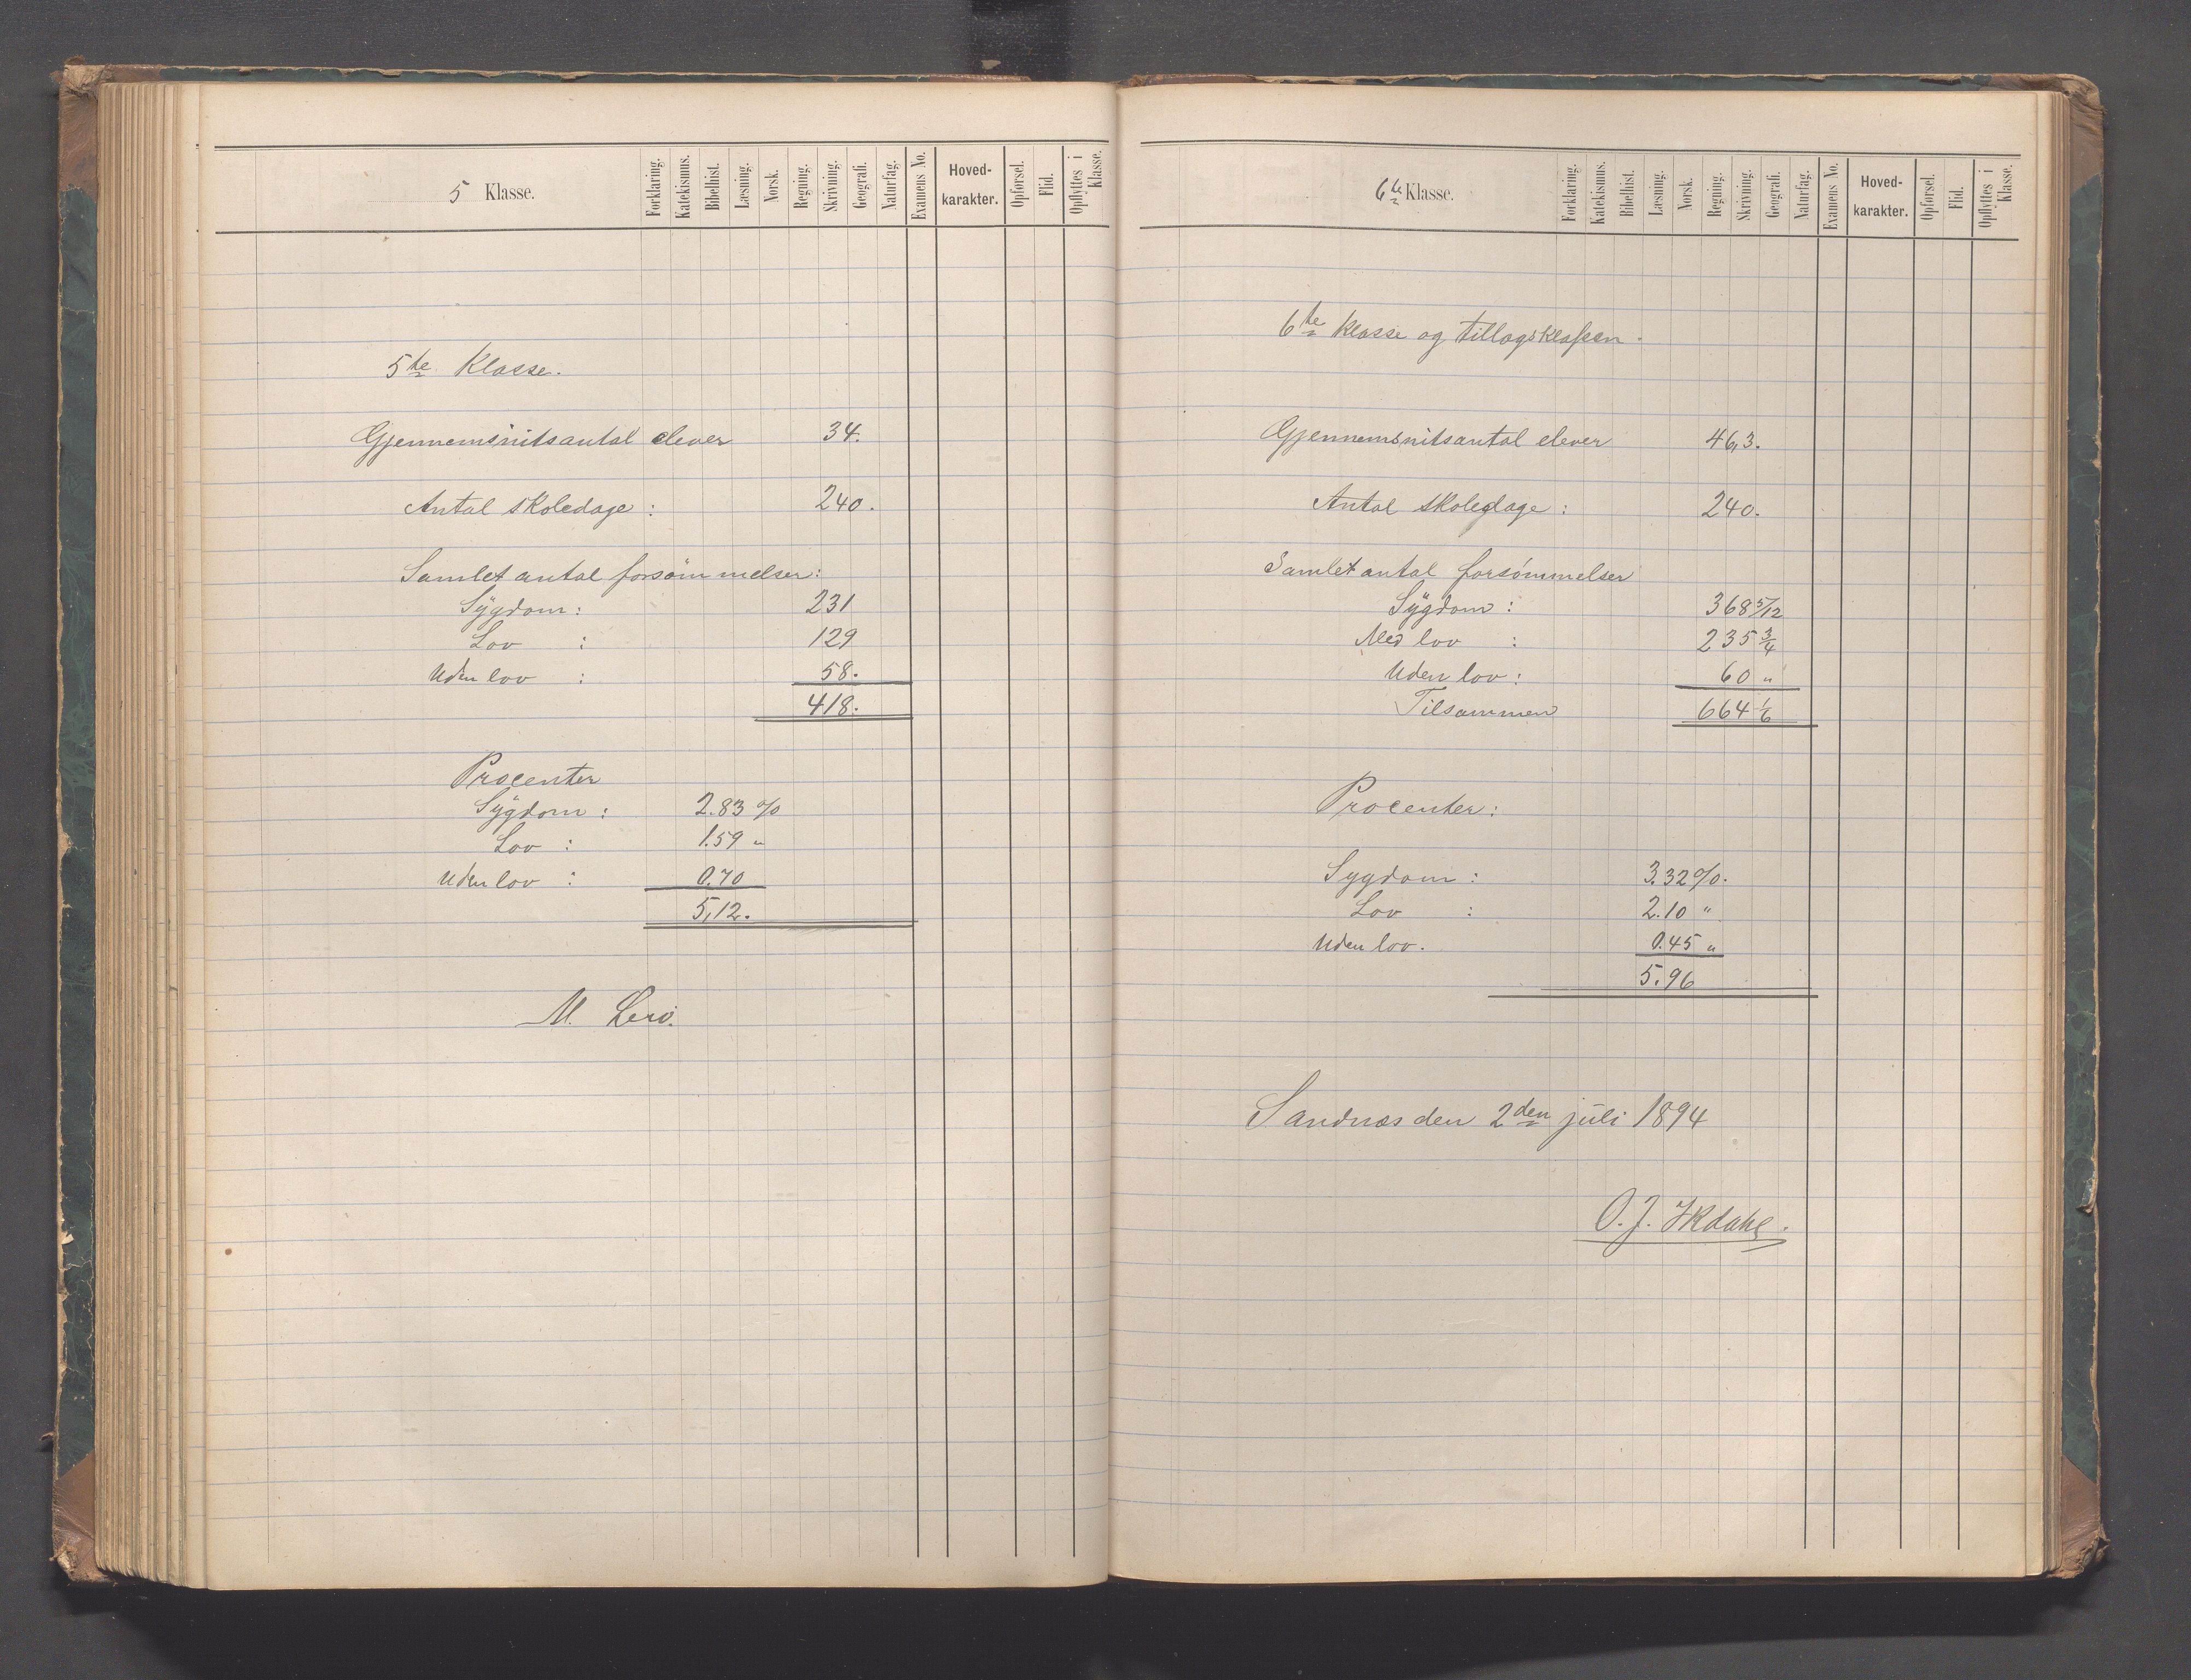 5 Klasse.
Forklaring. Katekismus. Bibelhist. Læsning. Norsk. Regning. Skrivning. Geografi. Naturfag. Examens No. Hoved-karakter. Opførsel. Flid. Opflyttes i Klasse.
5te Klasse.
Gjennemsnitsantal elever 34.
Antal skoledage : 240.
Samlet antal forsømmelser:
Sygdom : 231
Lov : 129
Uden lov : 58.
418.
Procenter
Sygdom : 2.83 %
Lov : 1.59 "
Uden lov : 0.70
5,12.
M. Lerö.
6te Klasse.
Forklaring. Katekismus. Bibelhist. Læsning. Norsk. Regning. Skrivning. Geografi. Naturfag. Examens No. Hoved-karakter. Opførsel. Flid. Opflyttes i Klasse.
6te Klasse og tillægsklassen.
Gjennemsnitsantal elever 46,3.
Antal skoledage : 240.
Samlet antal forsømmelser
Sygdom : 368 5/12
Med lov : 235 3/4
Uden lov : 60 "
Tilsammen 664 1/6
Procenter :
Sygdom : 3.32 %.
Lov : 2.10 "
Uden lov. 0.45 "
5.96
Sandnæs den 2den juli 1894
O. J. Ikdahl.